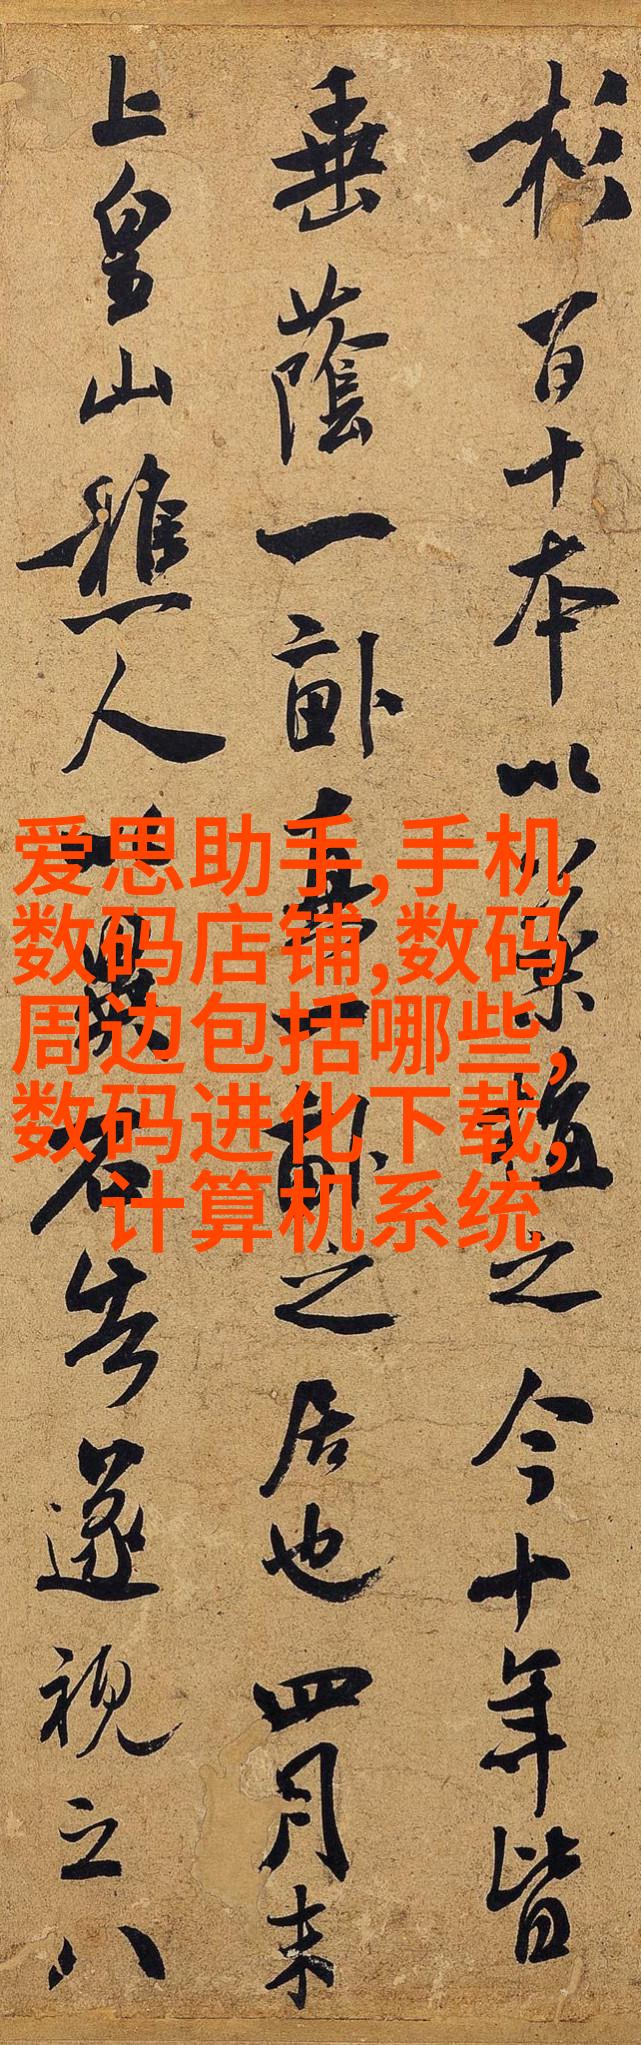 杉百十本以藥植之今十年皆
垂蔭一畝真一畝之居也四月末
上皇山樵人以異石告遂視之八
爱思助手,手机
数码店铺,数码
周边包括哪些,
数码进化下载,
计算机系统